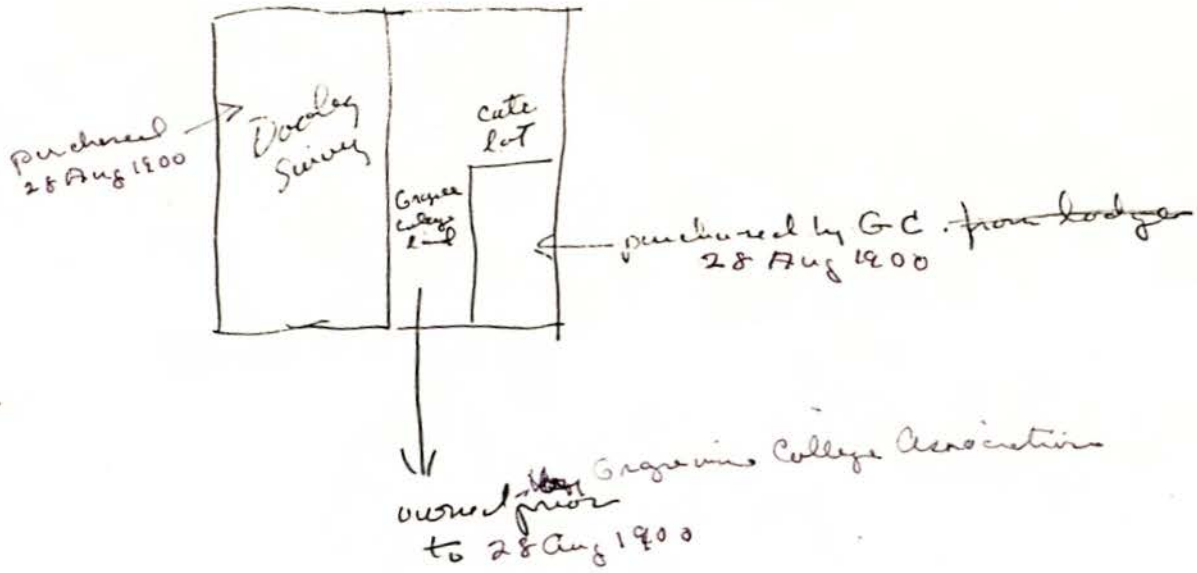 purchased
28 Aug 1900
Dooley
Survey
cute
lot
Grapevine
College
land
purchased by G C. from lodge
28 Aug 1900
owned prior
to 28 Aug 1900
Grapevine College Association